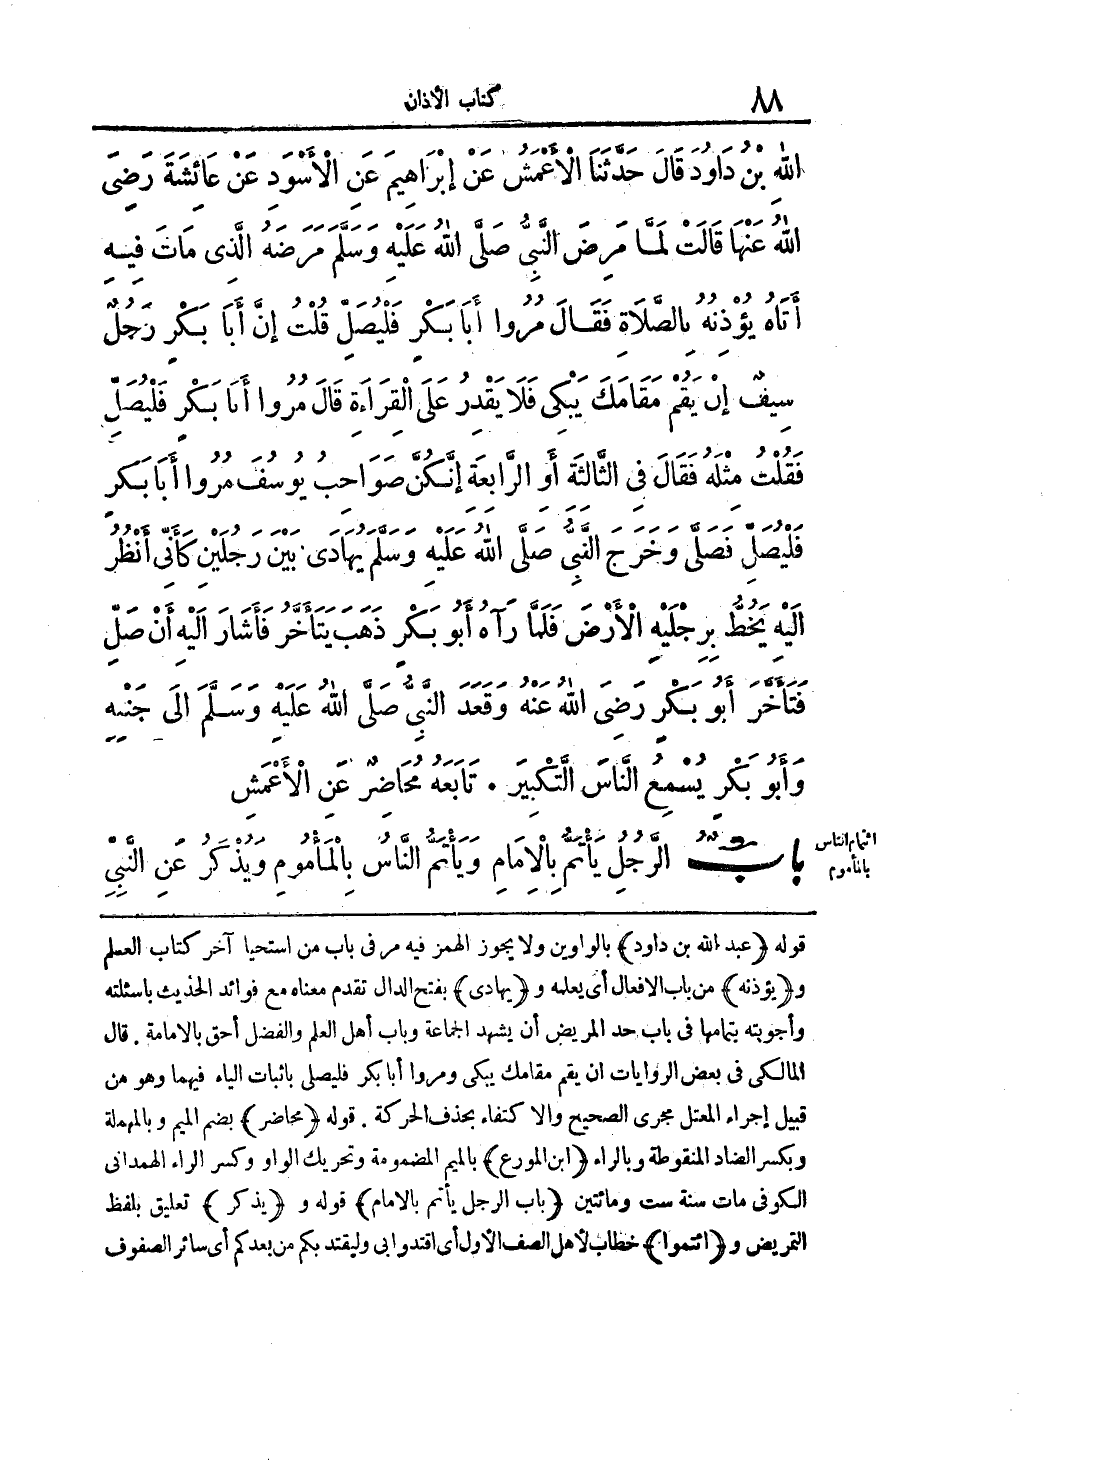 ٨٨ كتاب الأذان
اللهِ بْنُ دَاوُدَ قَالَ حَدَّثَنَا الْأَعْمَشُ عَنْ إِبْرَاهِيمَ عَنِ الْأَسْوَدِ عَنْ عَائِشَةَ رَضِيَ
اللهُ عَنْهَا قَالَتْ لَمَّا مَرِضَ النَّبِيُّ صَلَّى اللهُ عَلَيْهِ وَسَلَّمَ مَرَضَهُ الَّذِى مَاتَ فِيهِ
أَتَاهُ يُؤْذِنُهُ بِالصَّلَاةِ فَقَالَ مُرُوا أَبَا بَكْرٍ فَلْيُصَلِّ قُلْتُ إِنَّ أَبَا بَكْرٍ رَجُلٌ
سِيفٌ إِنْ يَقُمْ مَقَامَكَ يَبْكِى فَلَا يَقْدِرُ عَلَى الْقِرَاءَةِ قَالَ مُرُوا أَبَا بَكْرٍ فَلْيُصَلِّ
فَقُلْتُ مِثْلَهُ فَقَالَ فِى الثَّالِثَةِ أَوِ الرَّابِعَةِ إِنَّكُنَّ صَوَاحِبُ يُوسُفَ مُرُوا أَبَا بَكْرٍ
فَلْيُصَلِّ فَصَلَّى وَخَرَجَ النَّبِيُّ صَلَّى اللهُ عَلَيْهِ وَسَلَّمَ يُهَادَى بَيْنَ رَجُلَيْنِ كَأَنِّى أَنْظُرُ
الَيْهِ يَخُطُّ بِرِجْلَيْهِ الْأَرْضَ فَلَمَّا رَآهُ أَبُو بَكْرٍ ذَهَبَ يَتَأَخَّرُ فَأَشَارَ الَيْهِ أَنْ صَلِّ
فَتَأَخَّرَ أَبُو بَكْرٍ رَضِىَ اللهُ عَنْهُ وَقَعَدَ النَّبِىُّ صَلَّى اللهُ عَلَيْهِ وَسَلَّمَ الَى جَنْبِهِ
وَأَبُو بَكْرٍ يُسْمِعُ النَّاسَ التَّكْبِيرَ . تَابَعَهُ مُحَاضِرٌ عَنِ الْأَعْمَشِ
بَابٌ الرَّجُلِ يَأْتَمُّ بِالْإِمَامِ وَيَأْتَمُّ النَّاسُ بِالْمَأْمُومِ وَيُذْكَرُ عَنِ النَّبِيِّ
ائتمام الناس
بالمأموم
قوله ﴿عبد الله بن داود﴾ بالواوين ولا يجوز الهمز فيه مر فى باب من استحيا آخر كتاب العلم
و ﴿يؤذنه﴾ من باب الافعال أى يعلمه و ﴿يهادى﴾ بفتح الدال تقدم معناه مع فوائد الحديث باسئلته
وأجوبته بتمامها فى باب حد المريض أن يشهد الجماعة وباب أهل العلم والفضل أحق بالامامة . قال
المالكى فى بعض الروايات ان يقم مقامك يبكى ومروا أبا بكر فليصلى باثبات الياء فيهما وهو من
قبيل إجراء المعتل مجرى الصحيح والاكتفاء بحذف الحركة . قوله ﴿محاضر﴾ بضم الميم و بالمهملة
وبكسر الضاد المنقوطة وبالراء ﴿ابن المورع﴾ بالميم المضمومة وتحريك الواو وكسر الراء الهمدانى
الكوفى مات سنة ست ومائتين ﴿باب الرجل يأتم بالامام﴾ قوله و ﴿يذكر﴾ تعليق بلفظ
التمريض و ﴿ائتموا﴾ خطاب لأهل الصف الأول أى اقتدوا بى وليقتد بكم من بعدكم أى سائر الصفوف